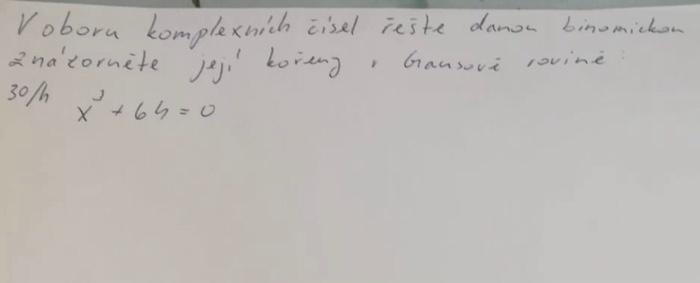 V oboru komplexních čísel řešte danou binomickou
znázorněte její kořeny v Gaussově rovině:
30/h x³ + 64 = 0